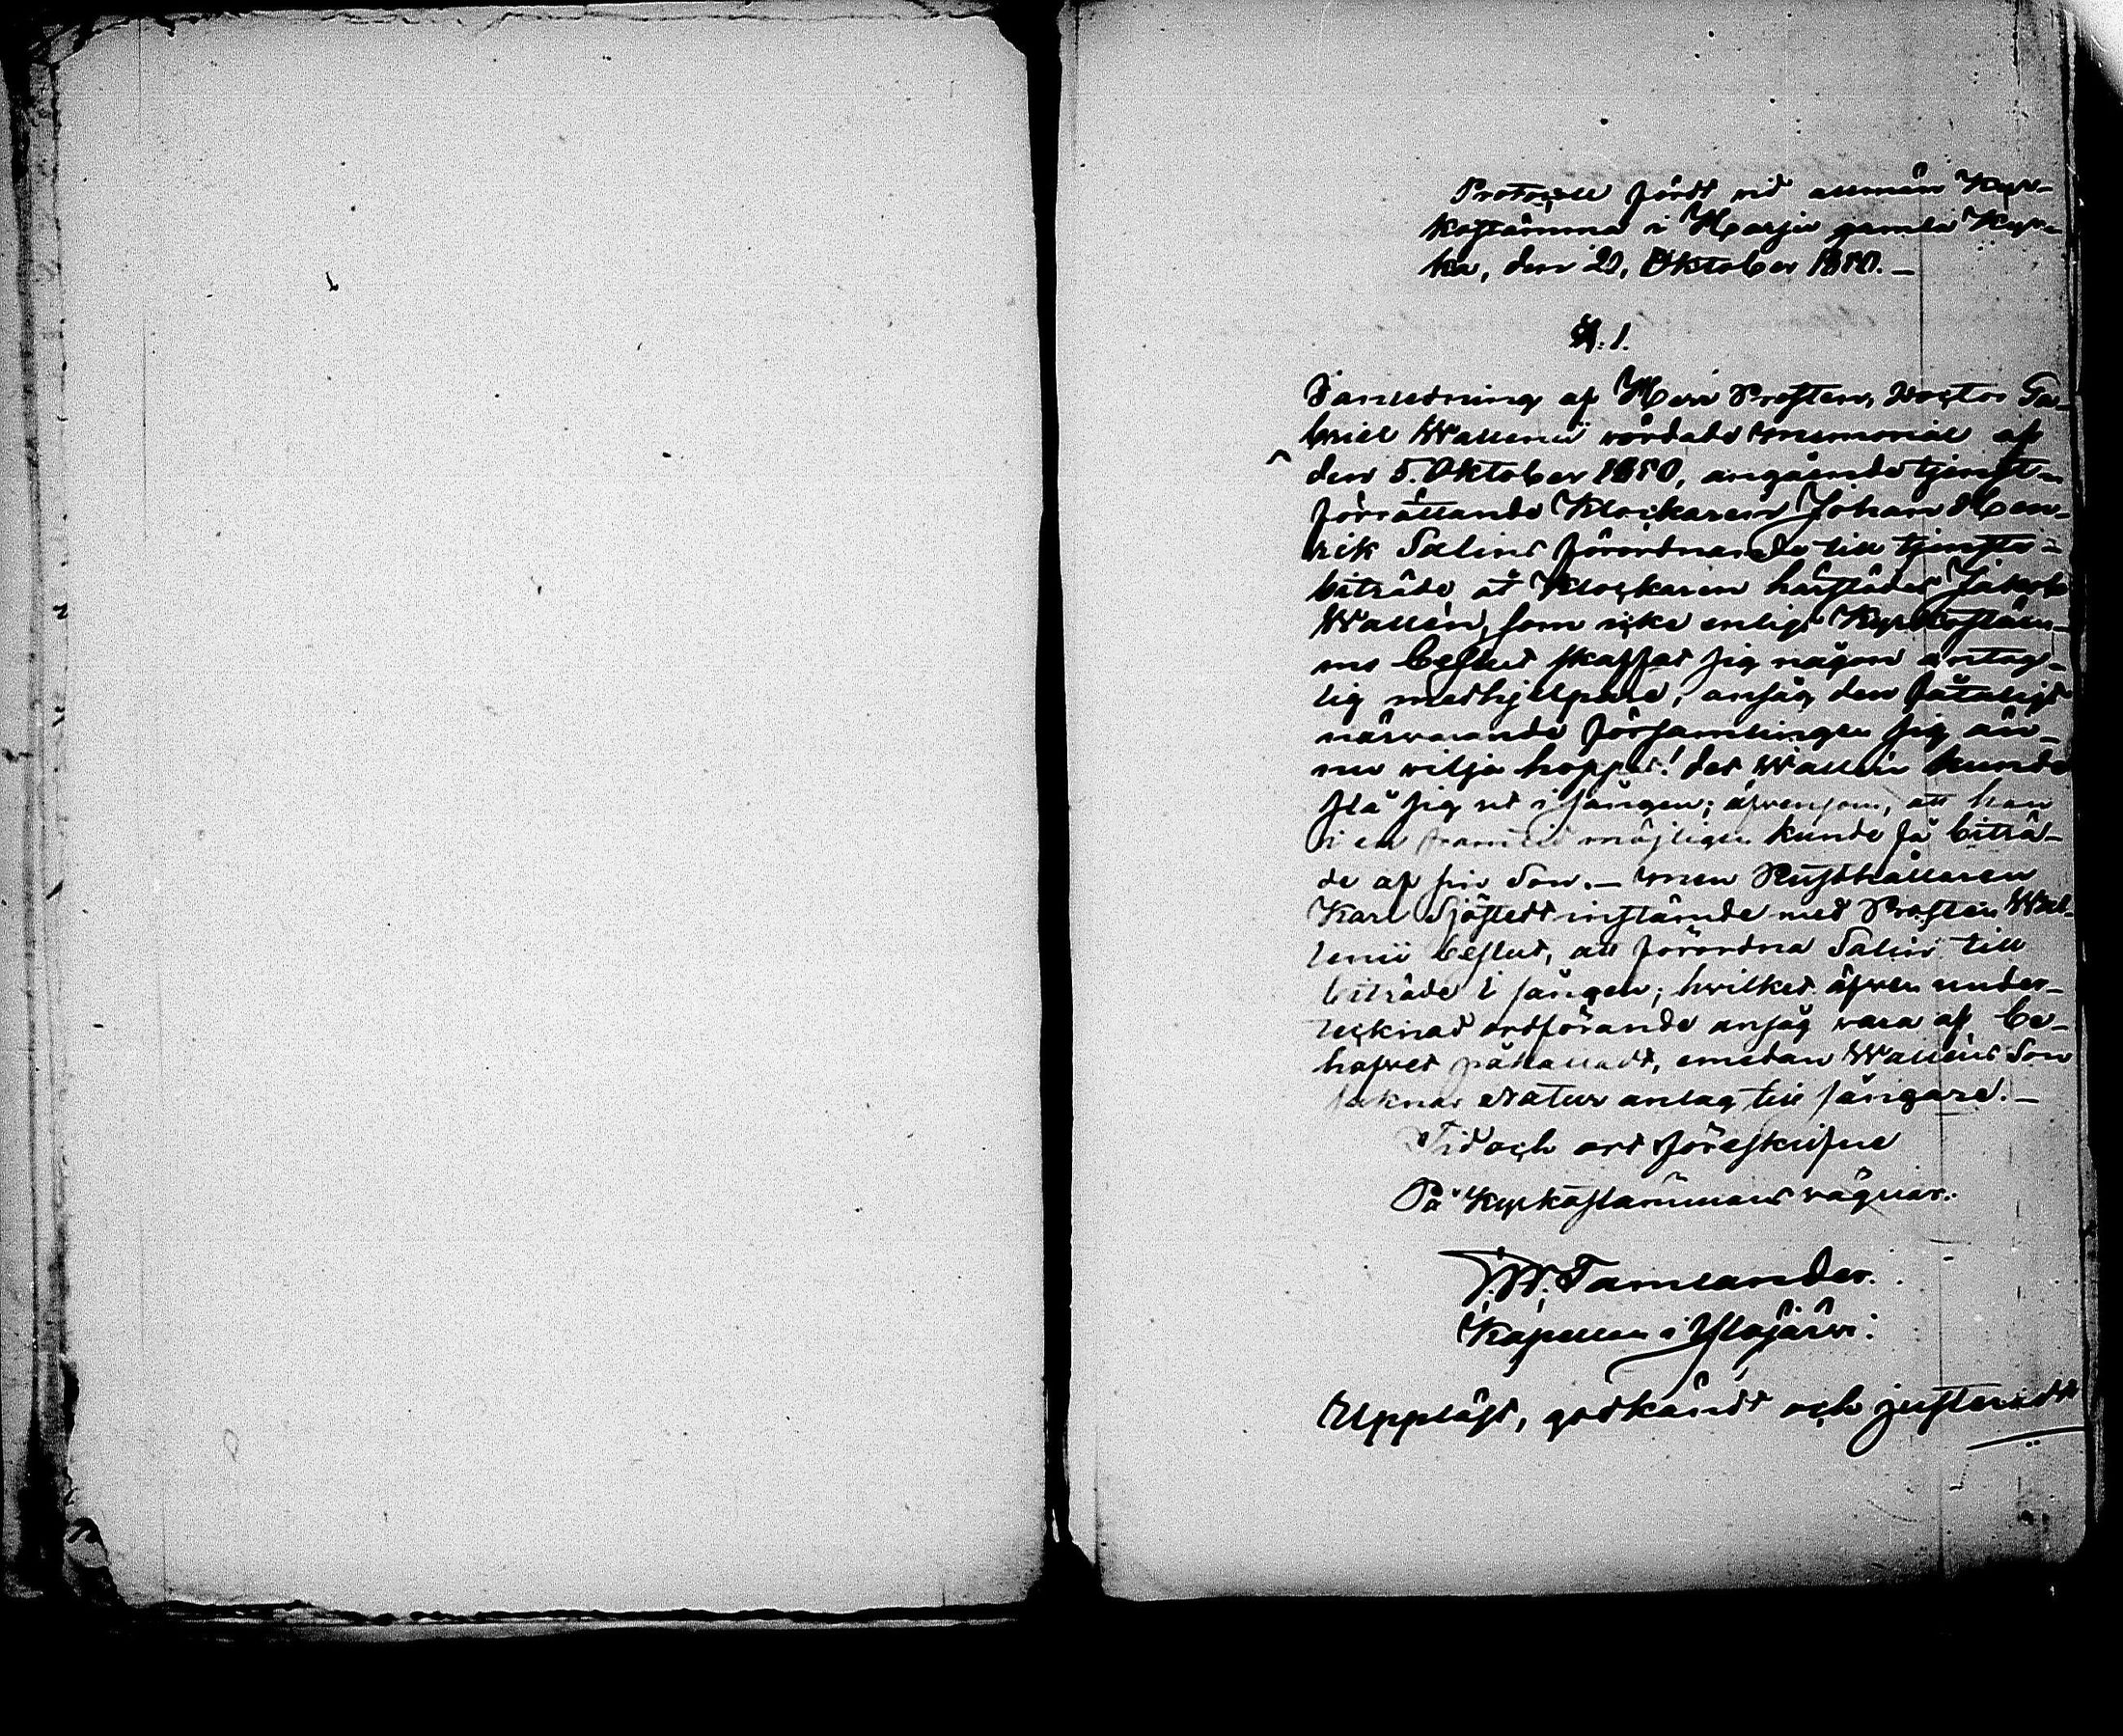 Protocoll fördt vid allmän Kyr-
kostämma i Harju gamla Kyr-
ka, den 20. Oktober 1850. —
§. 1.
I anledning af Herr Prosten, Doctor Ga-
briel Wallenii vördade memorial af
den 5. Oktober 1850, angående tjenst-
förrättande Klockaren Johan Hen-
rik Salins förordnande till tjenste-
biträde åt Klockaren härstädes Jakob
Wallén, som icke enligt Kyrkostäm-
mo beslut skaffat sig någon antag-
lig medhjelpare, ansåg den fåtaligt
närvarande församlingen sig än-
nu vilja hoppas! det Wallén kunde
slå sig ut i sången; äfvensom, att han
i en framtid möjligen kunde få biträ-
de af sin Son. — men Rusthållaren
Karl Sjöstedt instämde med Prosten Wal-
lenii beslut, att förordna Salin till
biträde i sången; hvilket äfven under-
tecknad ordförande ansåg vara af be-
hofvet påkalladt, emedan Walléns Son
saknar Natur anlag till sångare. —
Tid och ort föreskrifne
På Kyrkostämmans vägnar.
Tamlander.
Kapellan i Ylöjärvi.
Uppläst, godkändt och justeradt